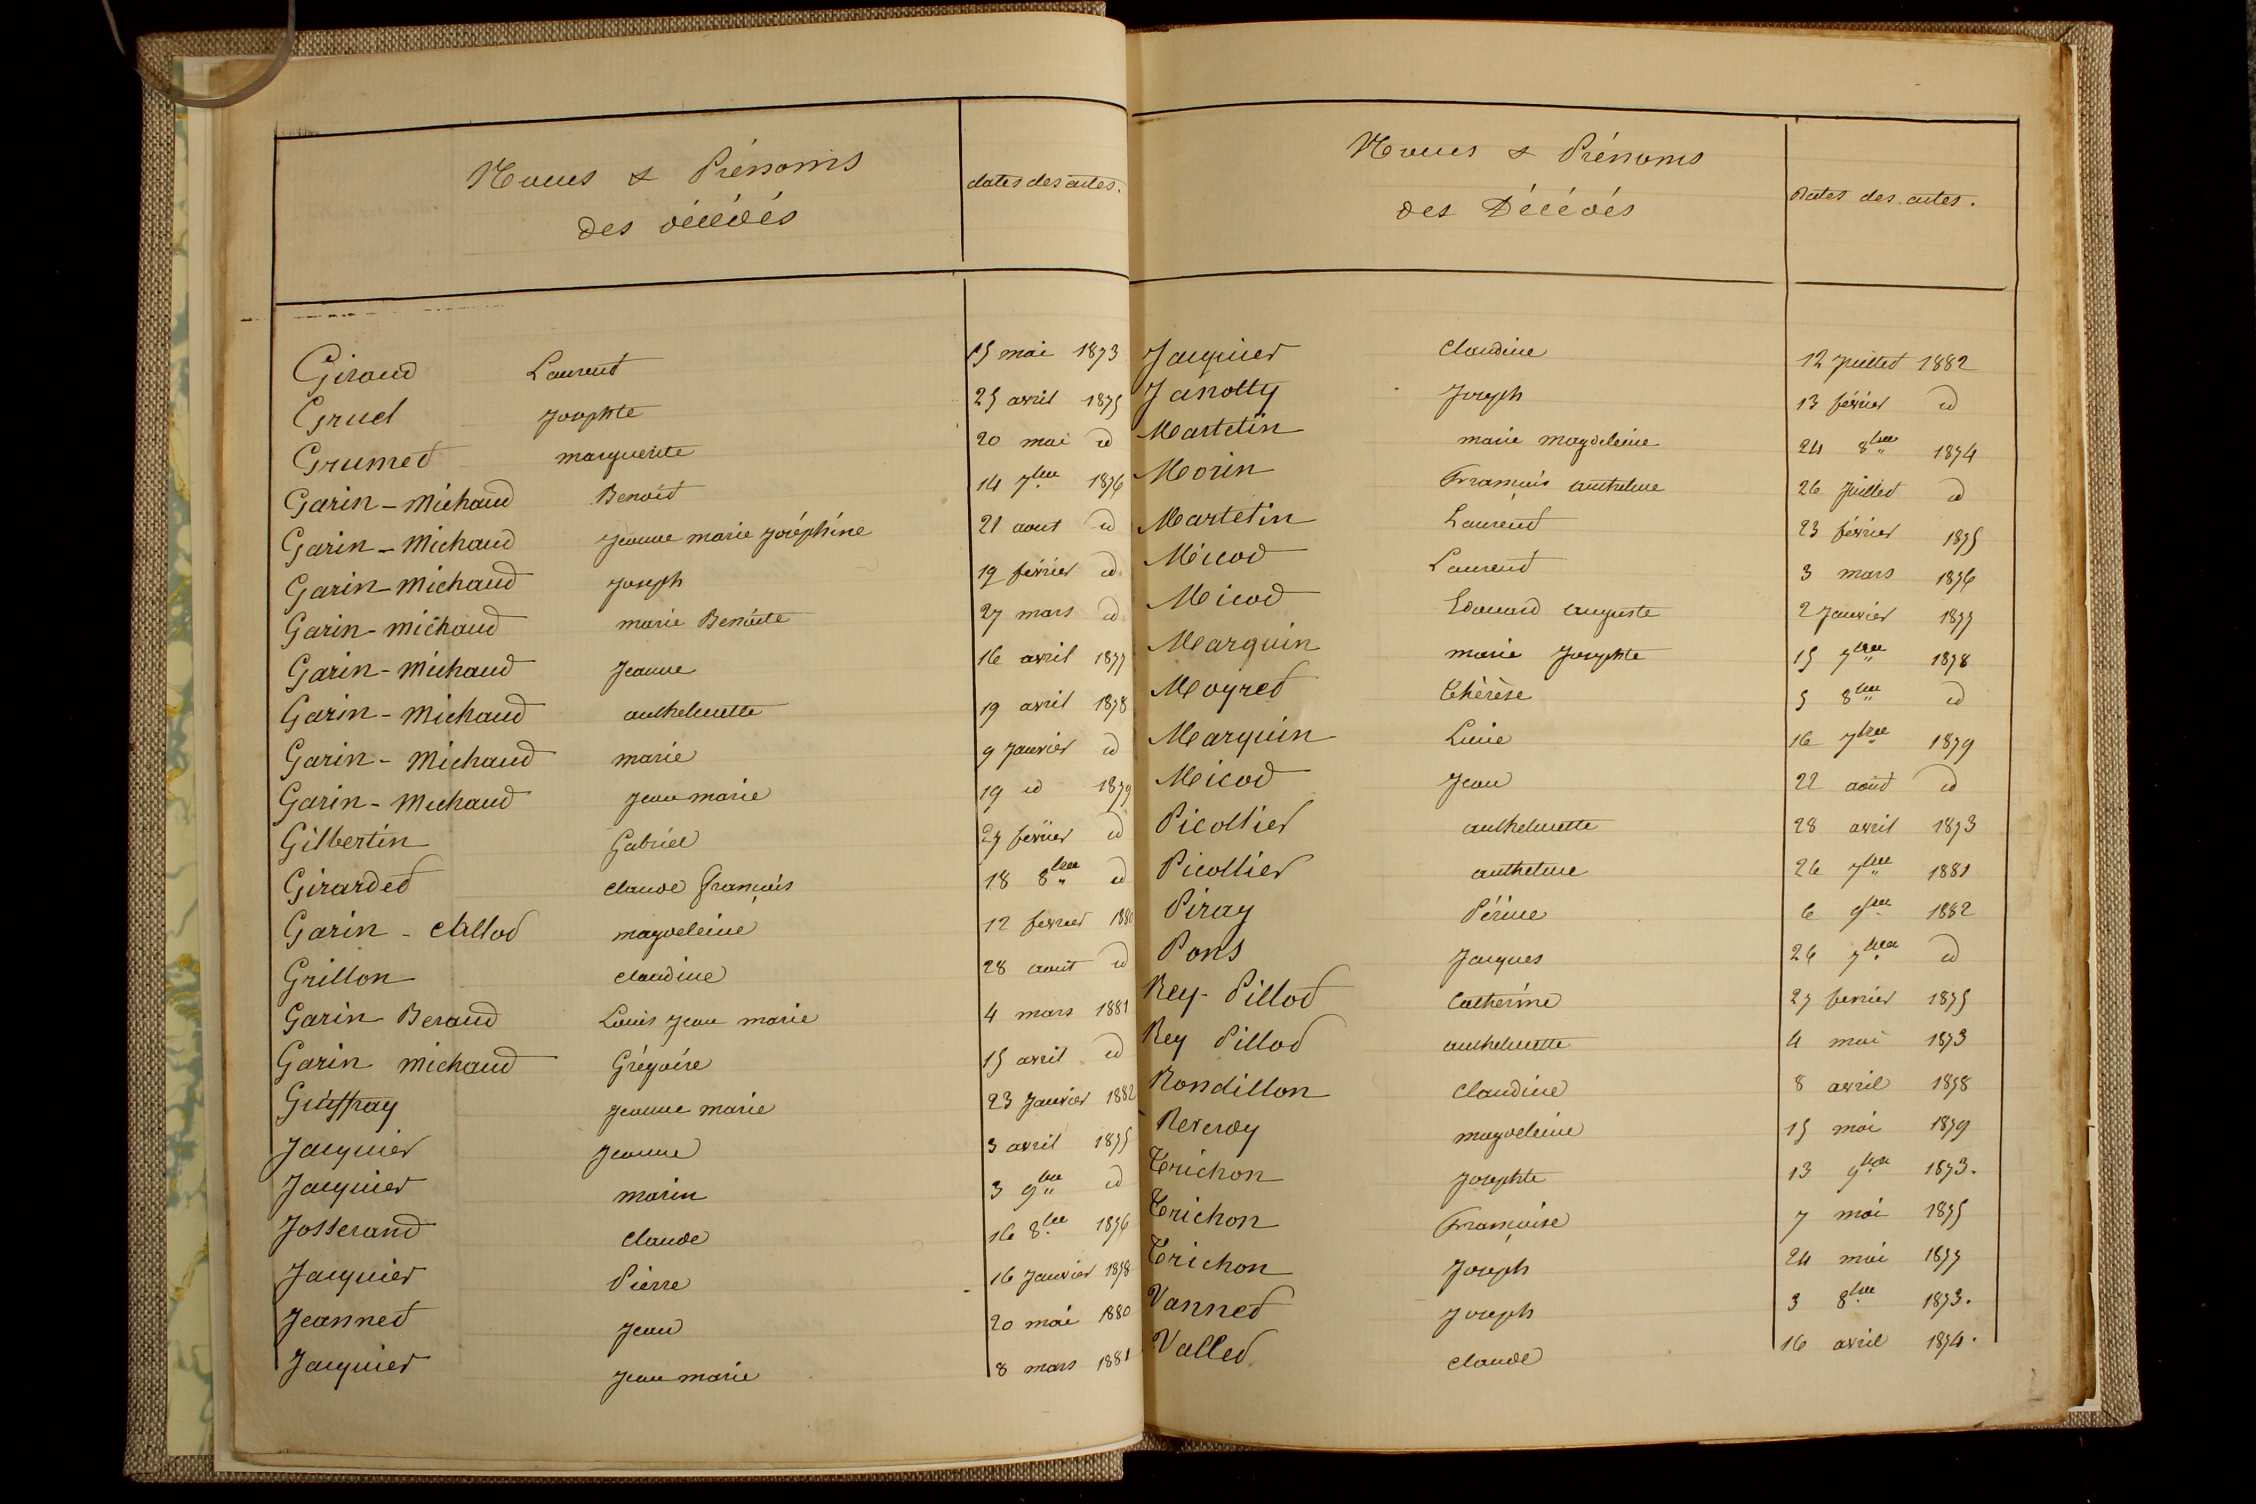 Noms & Prénoms
des décédés
dates des actes.
Giraud Laurent 15 mai 1873
Gruel Josephte 25 avril 1875
Grumet marguerite 20 mai id
Garin-Michaud Benoit 14 7bre 1876
Garin-Michaud Jeanne marie Joséphine 21 aout id
Garin-Michaud Joseph 19 février id
Garin-michaud marie Benoite 27 mars id
Garin-Michaud Jeanne 16 avril 1877
Garin-Michaud anthelmette 19 avril 1878
Garin-Michaud marie 9 Janvier id
Garin-Michaud Jean marie 19 id 1879
Gilbertin Gabriel 27 fevrier id
Girardet claude françois 18 8bre id
Garin- magdeleine 12 fevrier 1880
Grillon claudine 28 aout id
Garin Beraud Louis Jean marie 4 mars 1881
Garin michaud Grégoire 15 avril id
Guiffray Jeanne marie 23 Janvier 1882
Jacquier Jeanne 3 avril 1875
Jacquier marin 3 9bre id
Josserand claude 16 8bre 1876
Jacquier Pierre 16 Janvier 1878
Jeannet Jean 20 mai 1880
Jacquier Jean marie 8 mars 1881
Noms & Prénoms
des Décédés
Dates des actes.
Jacquier Claudine 12 Juillet 1882
Janolty Joseph 13 février id
Martetin marie magdeleine 24 8bre 1874
Morin François anthelme 26 Juillet id
Martetin Laurent 23 février 1875
Micod Laurent 3 mars 1876
Micod Edouard auguste 2 Janvier 1877
Marquin marie Josephte 15 7bre 1878
Moyret Thérèse 5 8bre id
Marquin Lucie 16 7bre 1879
Micod Jean 22 août id
Picollier anthelmette 28 avril 1873
Picollier anthelme 26 7bre 1881
Piray Périne 6 9bre 1882
Pons Jacques 26 7bre id
Rey-Pillod Catherine 27 fevrier 1875
Rey Pillod anthelmette 4 mai 1873
Rondillon Claudine 8 avril 1878
Reverdy magdeleine 15 mai 1879
Trichon Josephte 13 9bre 1873.
Trichon Françoise 7 mai 1875
Trichon Joseph 24 mai 1877
Vannet Joseph 3 8bre 1873.
Vallet claude 16 avril 1874.